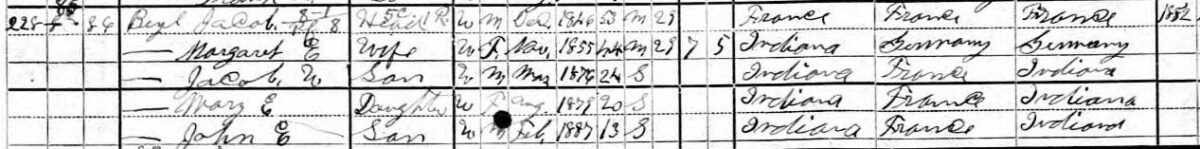 228 86 Beyl Jacob Head W M Dec 1846 53 M 29 France France France 1852
— Margaret E Wife W F Nov 1855 44 M 29 7 5 Indiana Germany Germany
— Jacob W Son W M Mar 1876 24 S Indiana France Indiana
— Mary E Daughter W F Aug 1879 20 S Indiana France Indiana
— John E Son W M Feb 1887 13 S Indiana France Indiana